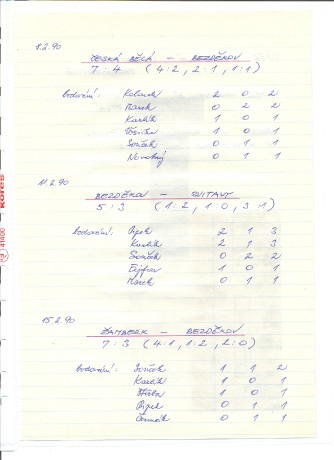 1.2.90
ČESKÁ BĚLÁ — BEZDĚKOV
7:4 (4:2, 2:1, 1:1)
bodování: Kolouch 2 0 2
Marek 0 2 2
Kavlík 1 0 1
1 0 1
Souček 0 1 1
Novotný 0 1 1
11.2.90
BEZDĚKOV — SVITAVY
5:3 (1:2, 1:0, 3:1)
bodování: Pipek 2 1 3
Kavlík 2 1 3
Souček 0 2 2
Eyfrar 1 0 1
Marek 0 1 1
15.2.90
ŽAMBERK — BEZDĚKOV
7:3 (4:1, 1:2, 2:0)
bodování: Souček 1 1 2
Kavlík 1 0 1
1 0 1
Pipek 0 1 1
Čermák 0 1 1
kores
41400